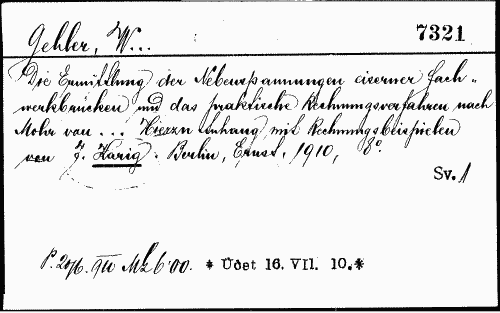 Gehler, W... 7321
Die Ermittlung der Nebenspannungen eiserner Fach-
werkbrücken und das praktische Rechnungsverfahren nach
Mohr von ... Hierzu Anhang mit Rechnungsbeispielen
von J. Harig. Berlin, Ernst, 1910, 8°.
Sv. 1
P. 20/6. 911 Mk 6·00. * Üdet 16. VII. 10.*